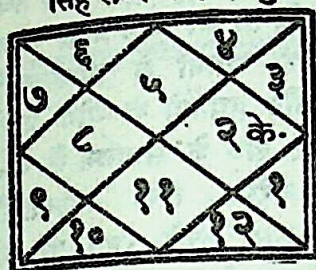 सिंह
६ ४
७ ५ ३
८ २ के·
९ ११ १
१० १२